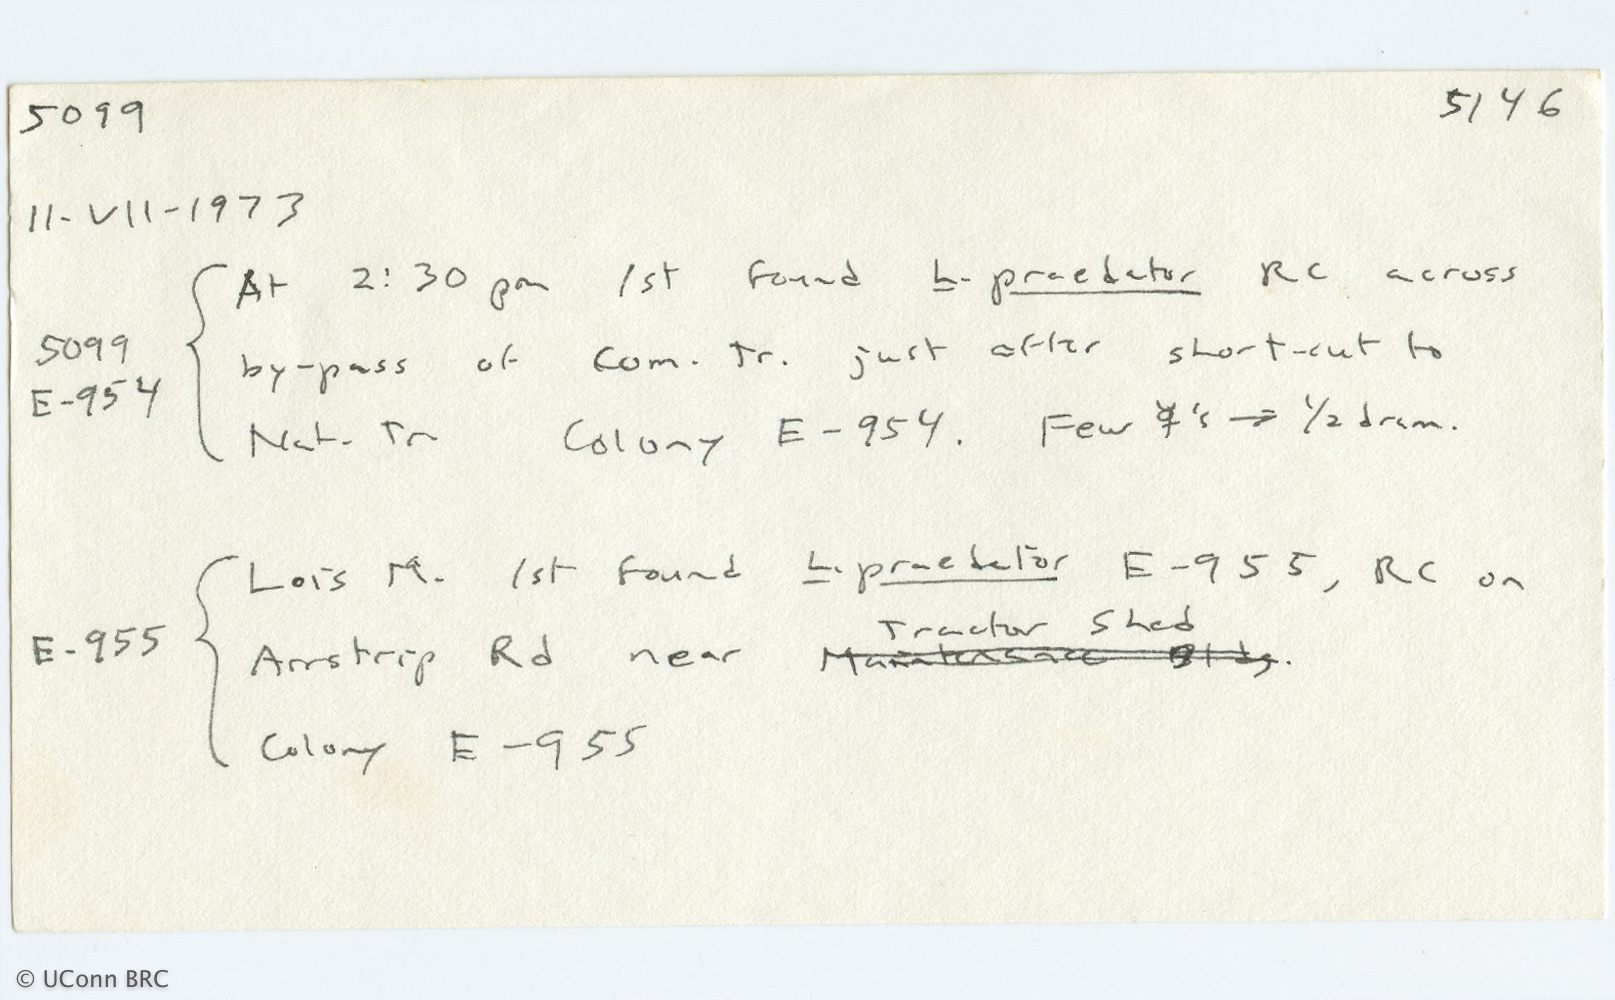 5099 5146
11-VII-1973
5099
E-954
At 2:30 pm 1st found L. praedator RC across
by-pass of Com. Tr. just after short-cut to
Nat. Tr Colony E-954. Few ☿'s → 1/2 dram.
E-955
Lois M. 1st found L. praedator E-955, RC on
Tractor Shed
Airstrip Rd near Maintenance Bldg.
Colony E-955
© UConn BRC